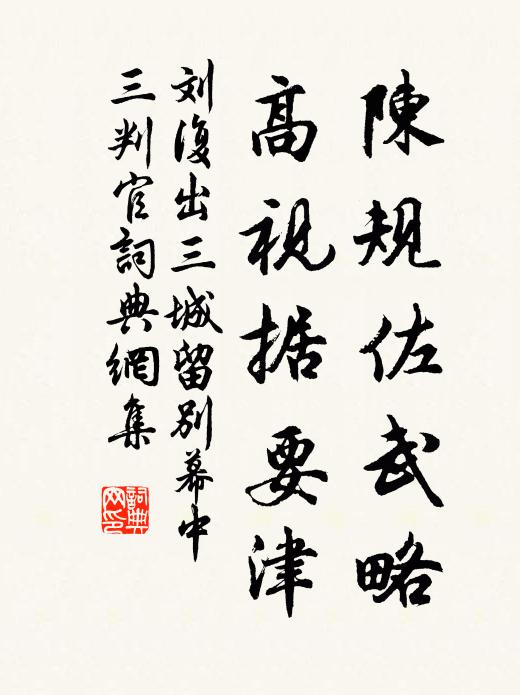 陳規佐武略
高視据要津
刘復出三城留别幕中
三判官詞典網集
詞典
网印